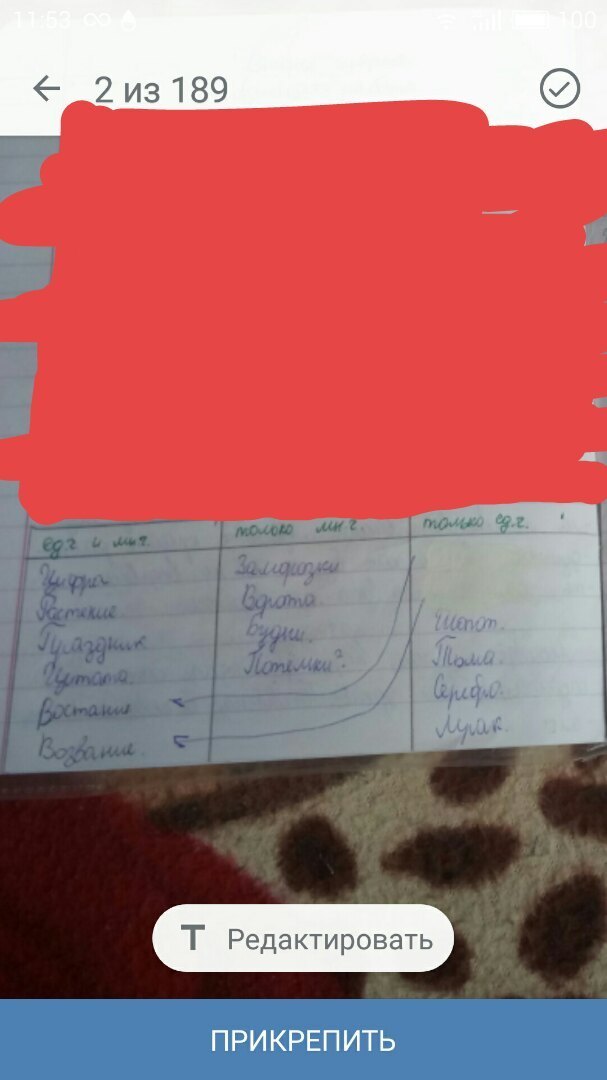 11:53
100
2 из 189
ед.ч и мн.ч.
только мн.ч.
только ед.ч.
Цифра
Растение
Праздник
Цитата.
Востание
Возвание.
Заморозки
Ворота
Будни.
Потемки?
Шопот.
Тьма.
Серебро.
Мрак.
T Редактировать
ПРИКРЕПИТЬ